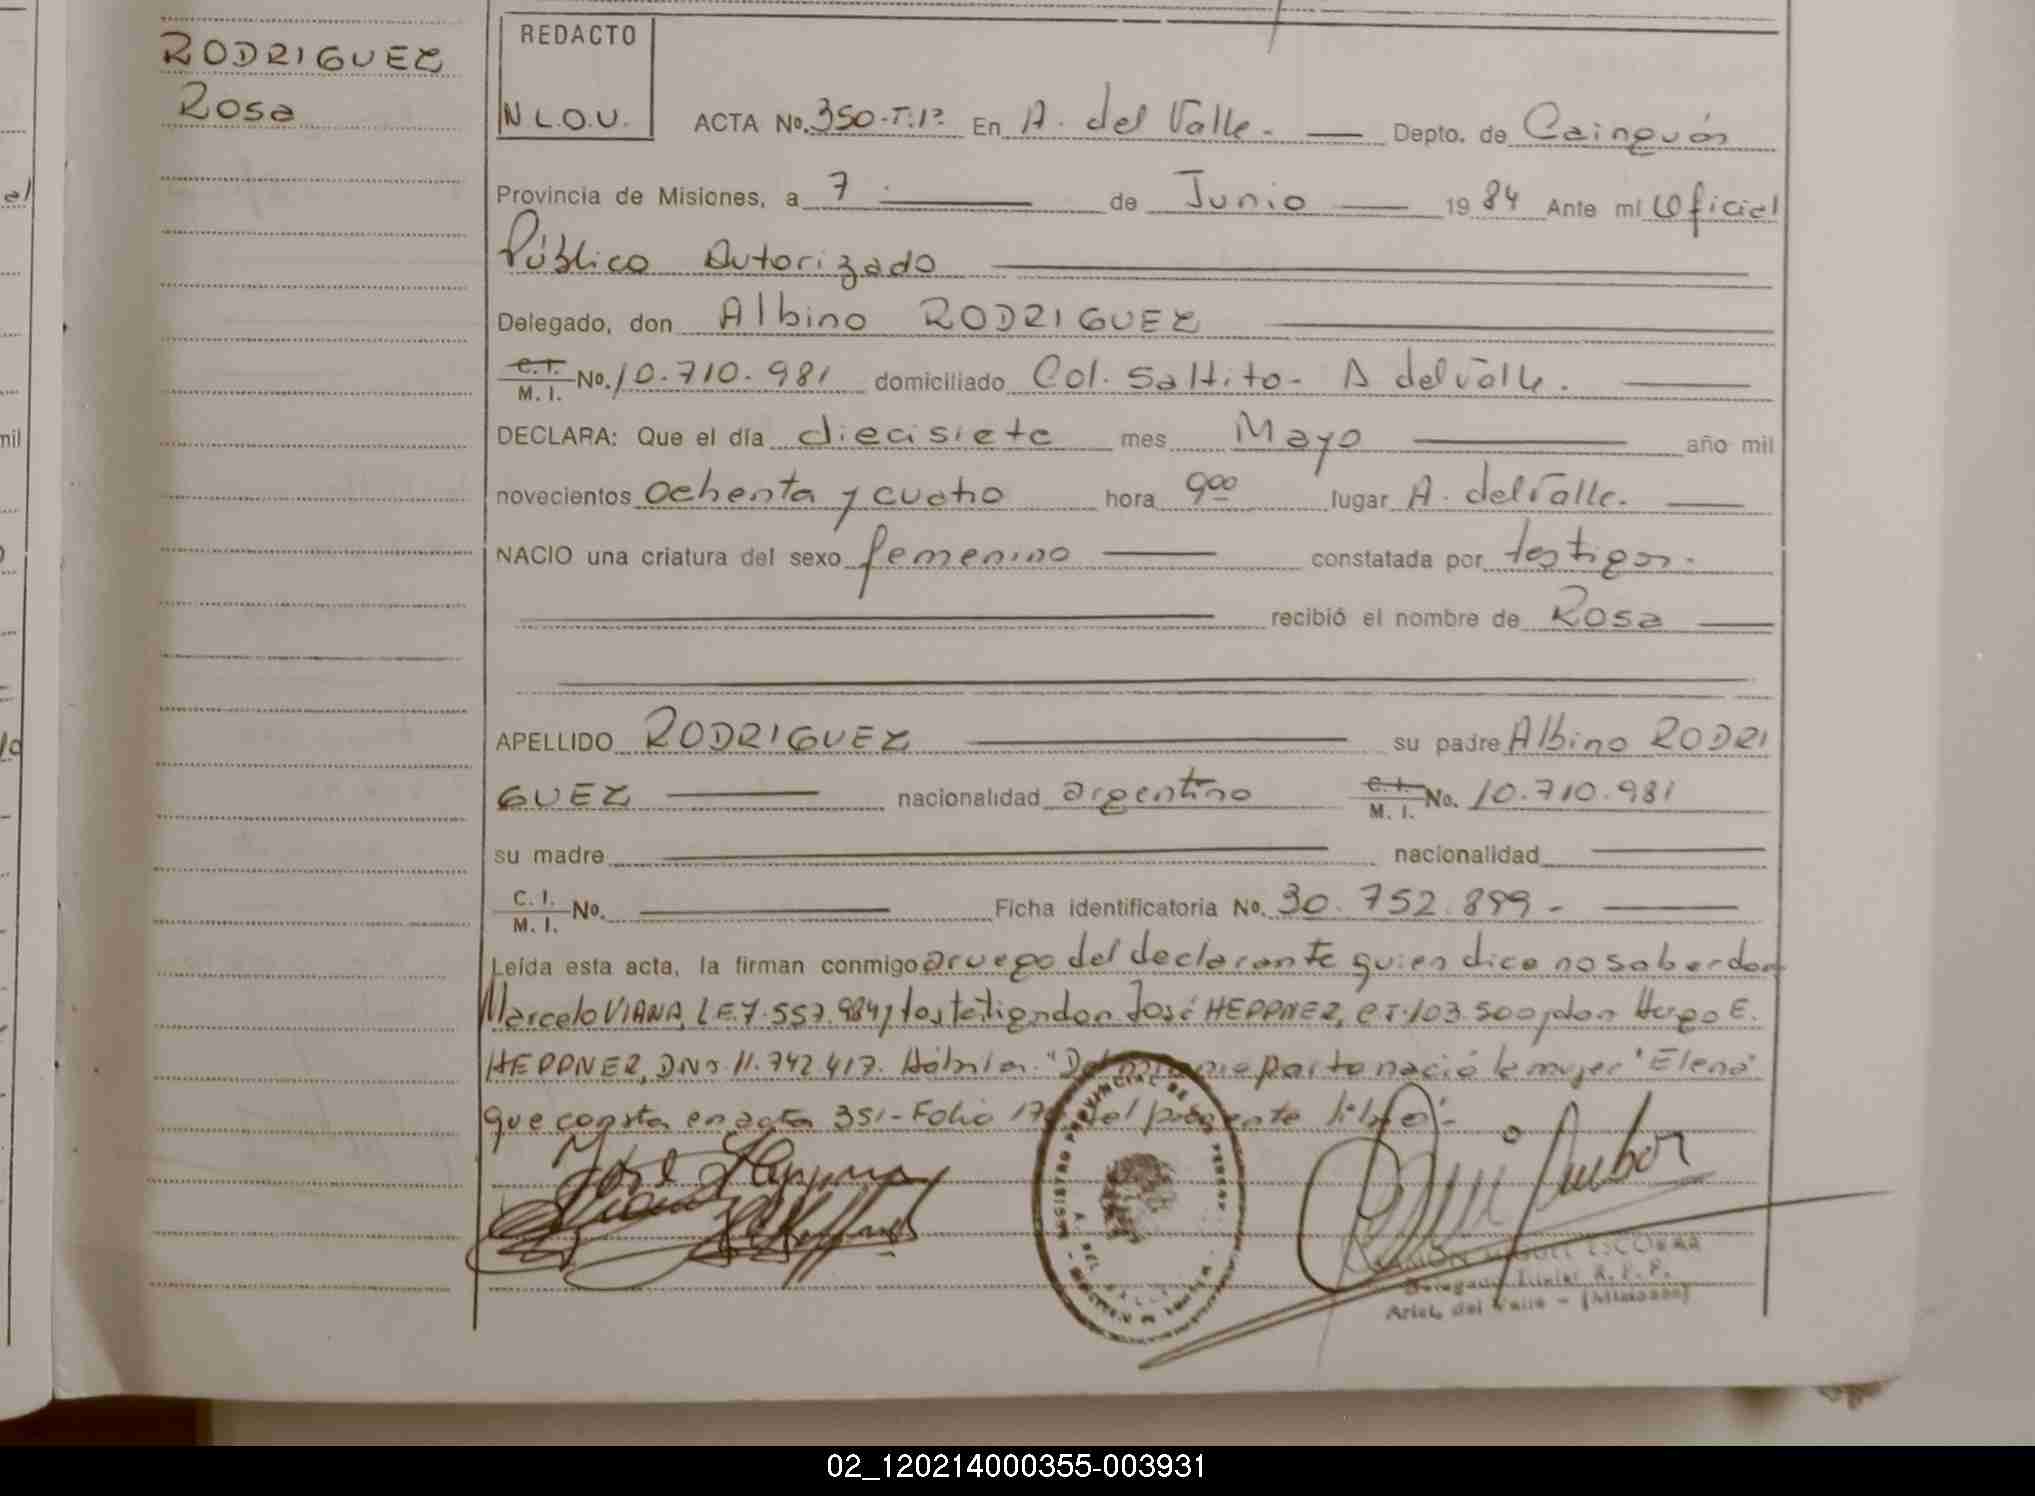 RODRIGUEZ
Rosa
REDACTO
N L.O.U.
ACTA No. 350-T:1º En A. del Valle. Depto. de Cainguás
Provincia de Misiones, a 7 de Junio 1984 Ante mi Oficial
Público Autorizado
Delegado, don Albino RODRIGUEZ
C.I. M. I. No. 10.710.981 domiciliado Col. Saltito- A del Valle.
DECLARA: Que el día diecisiete mes Mayo año mil
novecientos ochenta y cuatro hora 900 lugar A. del Valle.
NACIO una criatura del sexo femenino constatada por testigos.
recibió el nombre de Rosa
APELLIDO RODRIGUEZ su padre Albino RODRI
GUEZ nacionalidad argentino C.I. M. I. No. 10.710.981
su madre nacionalidad
C. I. M. I. No. Ficha identificatoria No. 30.752.899-
Leída esta acta, la firman conmigo a ruego del declarante quien dice no saber don
Marcelo VIANA, L.E. 7.557.984 y los testigos don José HEPPNER, C.I. 103.500 y don Hugo E.
HEPPNER, DNI. 11.742.417. "Del mismo parto nació la mujer "Elena"
que consta en acta 351-Folio del presente libro"-
REGISTRO PROVINCIAL DE LAS PERSONAS
A. DEL VALLE
MISIONES
RAMON MIGUEL ESCOBAR
Delegado R. P. P.
Arist. del Valle - (Misiones)
mil
02_120214000355-003931